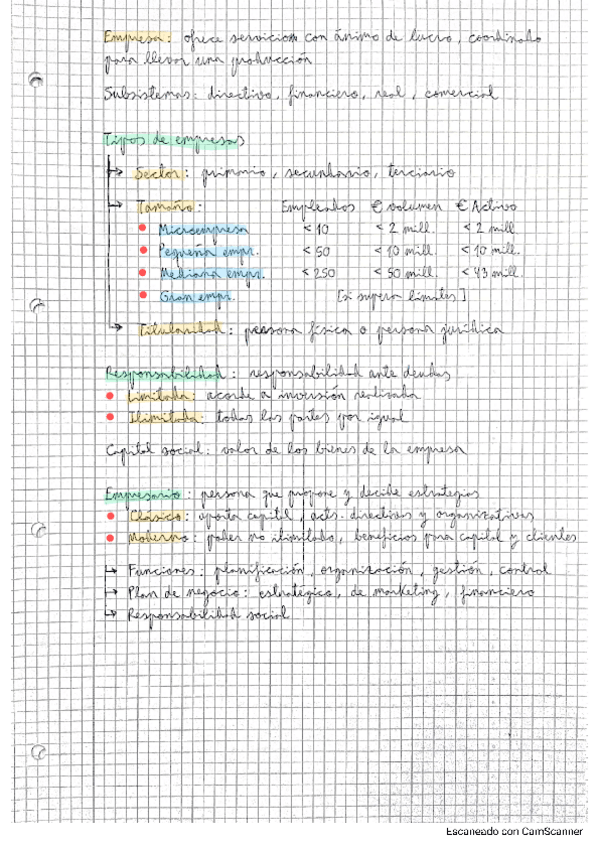 Empresa: ofrece servicios con ánimo de lucro, coordinado
para llevar una producción
Subsistemas: directivo, financiero, real, comercial
Tipos de empresas
Sector: primario, secundario, terciario
Tamaño: Empleados € volumen € Activo
Microempresa < 10 < 2 mill. < 2 mill
Pequeña empr. < 50 < 10 mill. < 10 mill.
Mediana empr. < 250 < 50 mill. < 43 mill.
Gran empr. [si supera límites]
Titularidad: persona física o persona jurídica
Responsabilidad: responsabilidad ante deudas
Limitada: acorde a inversión realizada
Ilimitada: todas las partes por igual
Capital social: valor de los bienes de la empresa
Empresario: persona que propone y decide estrategias
Clásico: aporta capital, acts. directivas y organizativas
Moderno: poder no ilimitado, beneficios para capital y clientes
Funciones: planificación, organización, gestión, control
Plan de negocio: estratégico, de marketing, financiero
Responsabilidad social
Escaneado con CamScanner